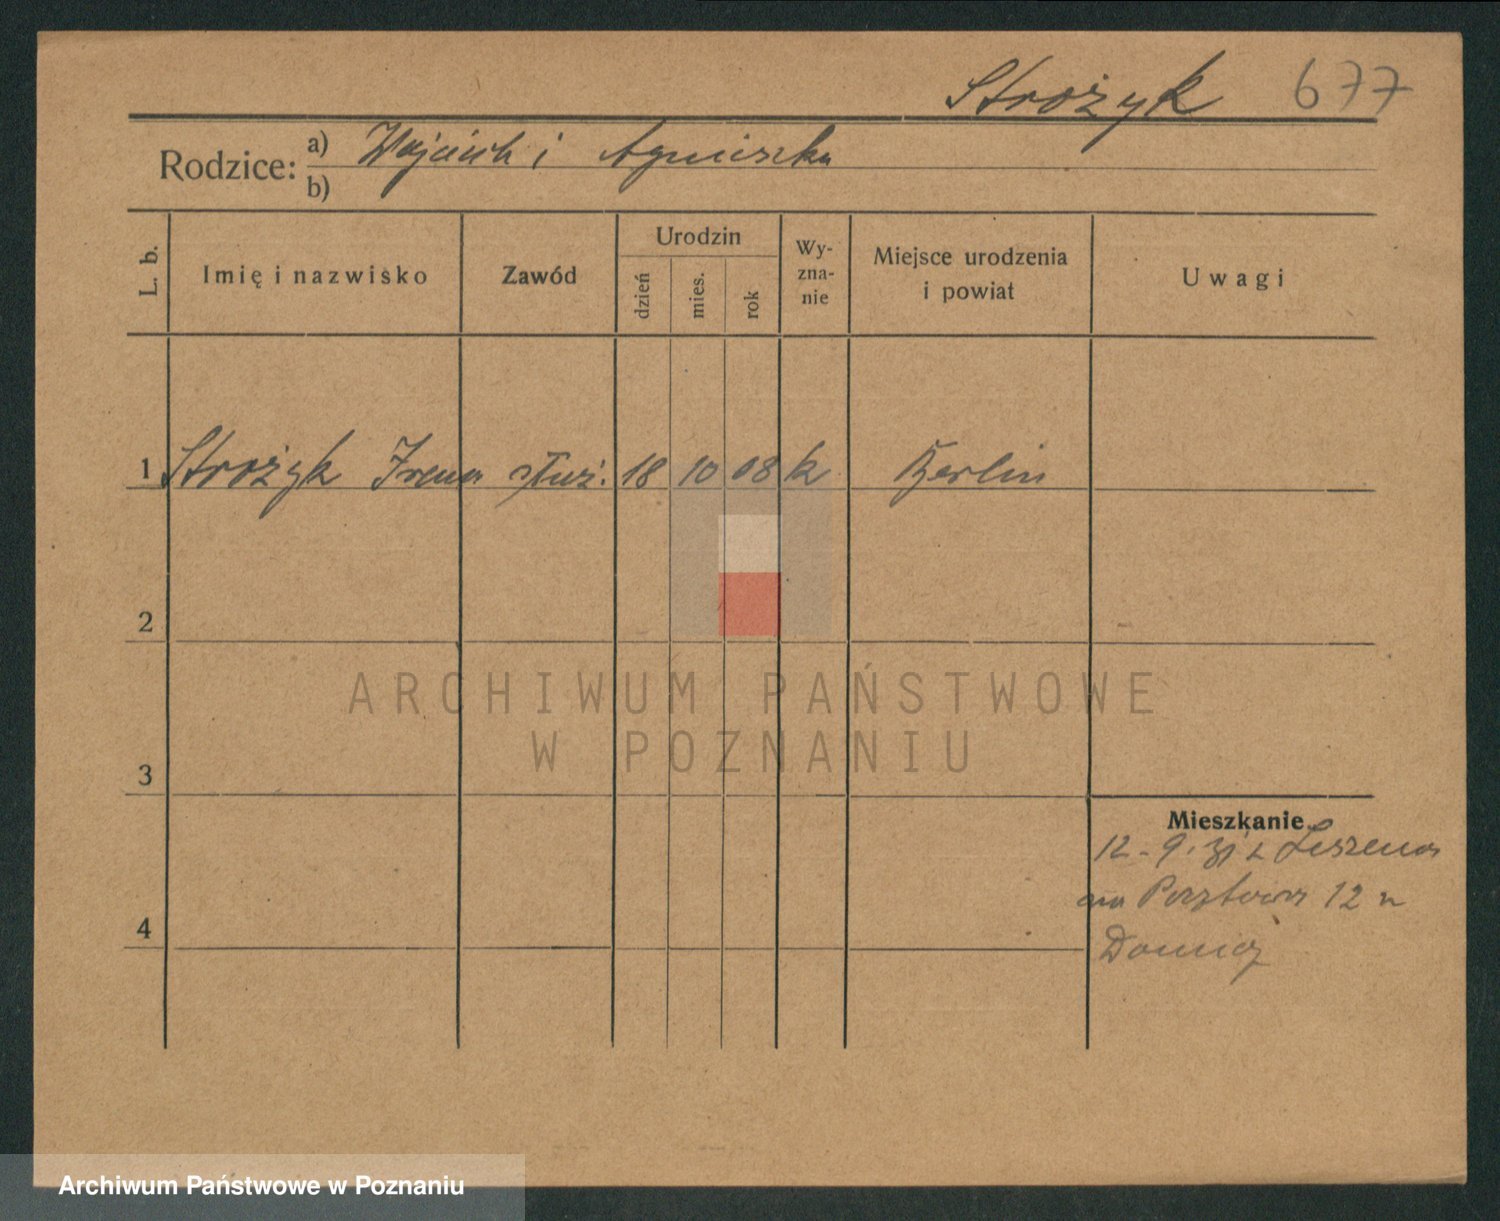 Strożyk 677
Rodzice: a) Wojciech i Agnieszka
b)
L. b.
Imię i nazwisko
Zawód
Urodzin
dzień
mies.
rok
Wy-
zna-
nie
Miejsce urodzenia
i powiat
Uwagi
1 Strożyk Irena służ. 18 10 08 k Berlin
2
ARCHIWUM PAŃSTWOWE
W POZNANIU
3
Mieszkanie
12-9.31 z Leszna
na 12
4
Archiwum Państwowe w Poznaniu